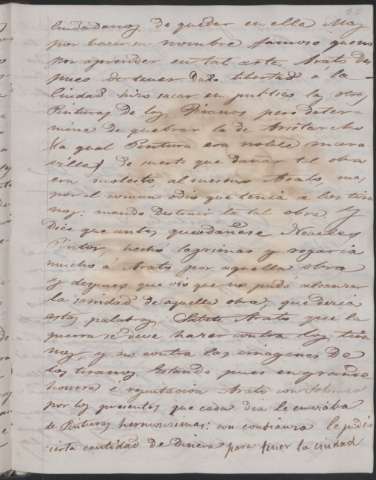 Ciudadanos de quedar en ella Mas
por hacer su nombre famoso que no
por aprender en tal arte. Arato des
pues de tener dado libertad a la
Ciudad hizo sacar en publico las otras
Pinturas de los Tiranos pero deter
mina de quebrar la de Aristarcho
(la qual Pintura era noble mara
villa) de suerte que dañar tal obra
era molesto al nuestro Arato, ma
por el comun odio que tenia a los tira
nos: mando destruir la tal obra. Y
Dice que antes, quedandose Neacles
Pintor, hecho lagrimas y rogaria
mucho á Arato por aquella obra
y despues que vio que no podia alcanzar
la de aquella obra, que deria
estas palabras, Arato que la
guerra se deve hazer contra los tira
nos, y no contra las imagenes de
los tiranos. Estando pues en grande
honrra e reputacion Arato con
por los presentes que cada dia le enviaba
de Pinturas hermosisimas: con confianza le pidió
cierta cantidad de Dinero para la ciudad